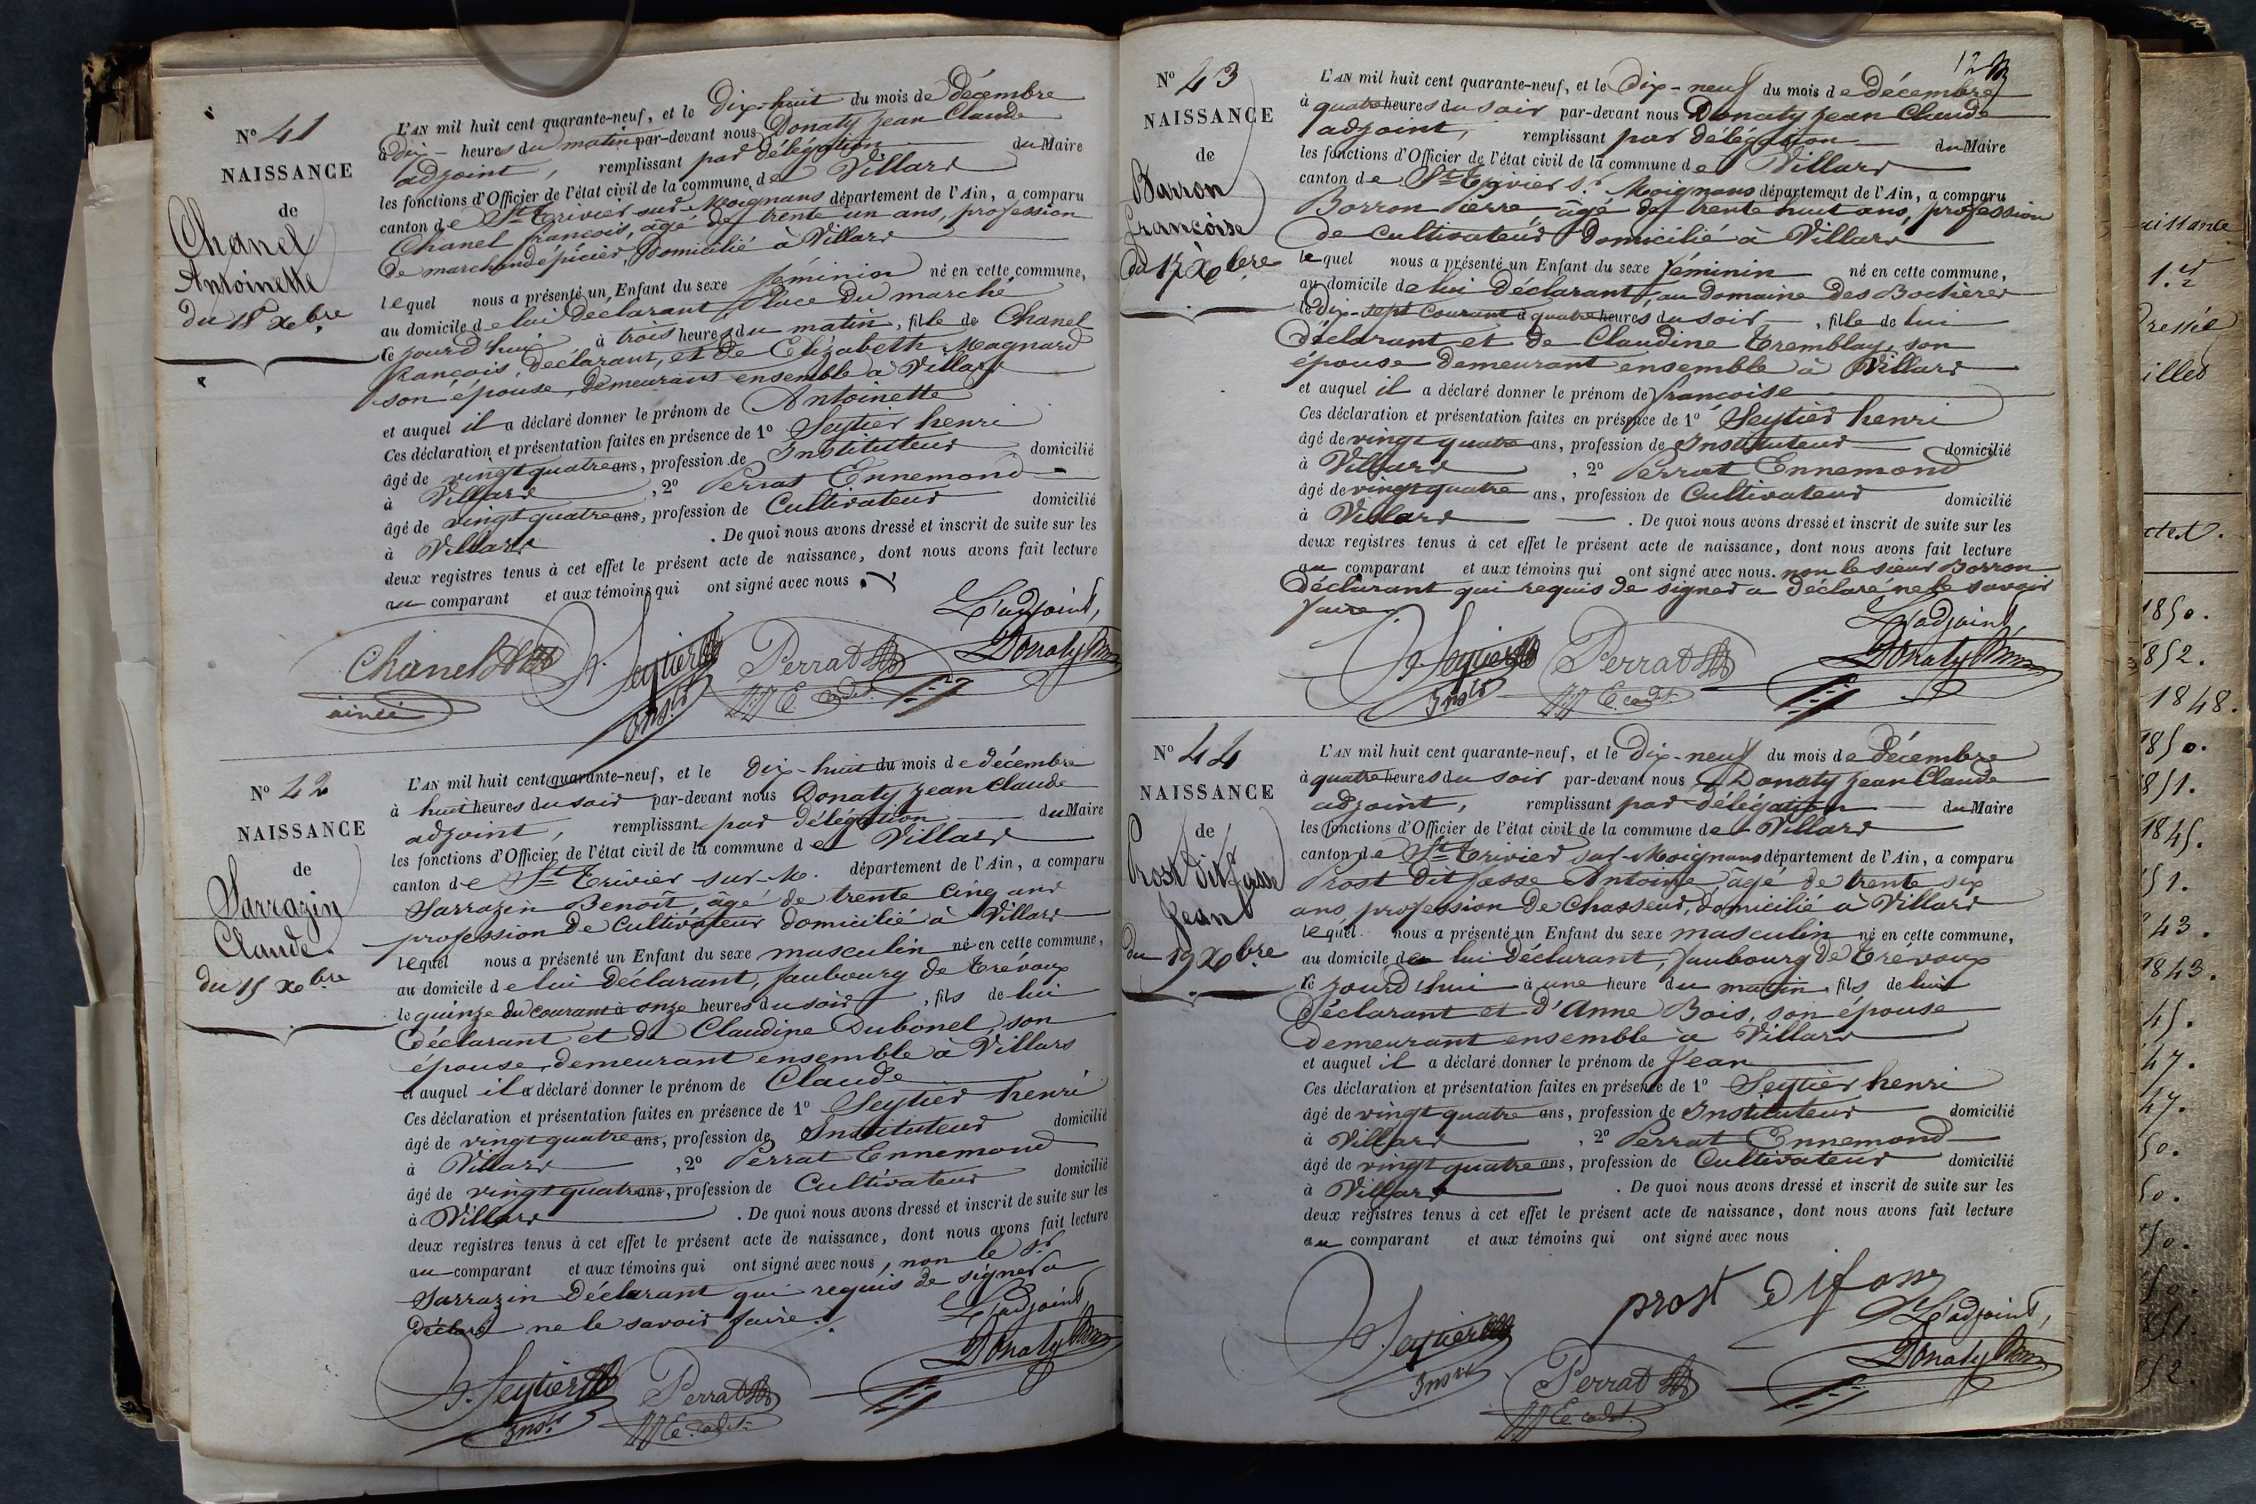 N° 41
NAISSANCE
de
Chanel
Antoinette
du 18 Xbre
L'AN mil huit cent quarante-neuf, et le Dix-huit du mois de décembre
à dix heures du matin par-devant nous Donaty Jean Claude
adjoint, remplissant par délégation du Maire
les fonctions d'Officier de l'état civil de la commune de Villars
canton de St Trivier sur Moignans département de l'Ain, a comparu
Chanel françois, âgé de trente un ans, profession
de marchand épicier, Domicilié à Villars
lequel nous a présenté un Enfant du sexe féminin né en cette commune,
au domicile de lui Déclarant, place Du marché
ce jourd'hui à trois heures du matin, fille de Chanel
françois, déclarant, et de Elizabeth Magnard
son épouse, demeurans ensemble à Villars
et auquel il a déclaré donner le prénom de Antoinette
Ces déclaration et présentation faites en présence de 1° Seytier henri
âgé de vingt quatre ans, profession de Instituteur domicilié
à Villars, 2° Perrat Ennemond
âgé de vingt quatre ans, profession de Cultivateur domicilié
à Villars. De quoi nous avons dressé et inscrit de suite sur les
deux registres tenus à cet effet le présent acte de naissance, dont nous avons fait lecture
au comparant et aux témoins qui ont signé avec nous.
L'adjoint,
Chanel
ainé
H. Seytier
Instr
Perrat
E. cadet
Donaty
N° 42
NAISSANCE
de
Sarrazin
Claude
du 15 Xbre
L'AN mil huit cent quarante-neuf, et le Dix-huit du mois de décembre
à huit heures du soir par-devant nous Donaty Jean Claude
adjoint, remplissant par délégation du Maire
les fonctions d'Officier de l'état civil de la commune de Villars
canton de St Trivier sur M. département de l'Ain, a comparu
Sarrazin Benoît, âgé de trente cinq ans
profession de Cultivateur domicilié à Villars
lequel nous a présenté un Enfant du sexe masculin né en cette commune,
au domicile de lui Déclarant, faubourg de Trévoux
le quinze du courant à onze heures du soir, fils de lui
déclarant et de Claudine Dubonel, son
épouse, demeurant ensemble à Villars
et auquel il a déclaré donner le prénom de Claude
Ces déclaration et présentation faites en présence de 1° Seytier henri
âgé de vingt quatre ans, profession de Instituteur domicilié
à Villars, 2° Perrat Ennemond
âgé de vingt quatre ans, profession de Cultivateur domicilié
à Villars. De quoi nous avons dressé et inscrit de suite sur les
deux registres tenus à cet effet le présent acte de naissance, dont nous avons fait lecture
au comparant et aux témoins qui ont signé avec nous, non le Sr
Sarrazin Déclarant qui requis de signer a
déclaré ne le savoir faire.
L'adjoint,
H. Seytier
Instr
Perrat
E. cadet
Donaty
12
N° 43
NAISSANCE
de
Barron
françoise
du 17 Xbre
L'AN mil huit cent quarante-neuf, et le Dix-neuf du mois de décembre
à quatre heures du soir par-devant nous Donaty Jean Claude
adjoint, remplissant par délégation du Maire
les fonctions d'Officier de l'état civil de la commune de Villars
canton de St Trivier sr Moignans département de l'Ain, a comparu
Borron Pierre âgé de trente huit ans, profession
de cultivateur Domicilié à Villars
lequel nous a présenté un Enfant du sexe féminin né en cette commune,
au domicile de lui Déclarant, au domaine des Bochères
le Dix-sept courant à quatre heures du soir, fille de lui
déclarant et de Claudine Tremblay, son
épouse demeurant ensemble à Villars
et auquel il a déclaré donner le prénom de françoise
Ces déclaration et présentation faites en présence de 1° Seytier henri
âgé de vingt quatre ans, profession de Instituteur domicilié
à Villars, 2° Perrat Ennemond
âgé de vingt quatre ans, profession de Cultivateur domicilié
à Villars. De quoi nous avons dressé et inscrit de suite sur les
deux registres tenus à cet effet le présent acte de naissance, dont nous avons fait lecture
au comparant et aux témoins qui ont signé avec nous. non le sieur Borron
Déclarant qui requis de signer a déclaré ne le savoir
faire.
L'adjoint
H. Seytier
Instr
Perrat
E. cadet
Donaty
N° 44
NAISSANCE
de
Prost Dit fasse
Jean
du 19 Xbre
L'AN mil huit cent quarante-neuf, et le Dix-neuf du mois de décembre
à quatre heures du soir par-devant nous Donaty Jean Claude
adjoint, remplissant par délégation du Maire
les fonctions d'Officier de l'état civil de la commune de Villars
canton de St Trivier sur Moignans département de l'Ain, a comparu
Prost Dit fasse Antoine, âgé de trente six
ans, profession de Chasseur, domicilié à Villars
lequel nous a présenté un Enfant du sexe masculin né en cette commune,
au domicile de lui Déclarant, faubourg de Trévoux
ce jourd'hui à une heure du matin fils de lui
Déclarant et d'Anne Bois, son épouse
demeurant ensemble à Villars
et auquel il a déclaré donner le prénom de Jean
Ces déclaration et présentation faites en présence de 1° Seytier henri
âgé de vingt quatre ans, profession de Instituteur domicilié
à Villars, 2° Perrat Ennemond
âgé de vingt quatre ans, profession de Cultivateur domicilié
à Villars. De quoi nous avons dressé et inscrit de suite sur les
deux registres tenus à cet effet le présent acte de naissance, dont nous avons fait lecture
au comparant et aux témoins qui ont signé avec nous
prost
L'adjoint,
H. Seytier
Instr
Perrat
E. cadet
Donaty
1850.
1852.
1848.
1850.
1851.
1845.
51.
43.
1843.
45.
47.
47.
47.
50.
50.
50.
50.
851.
52.